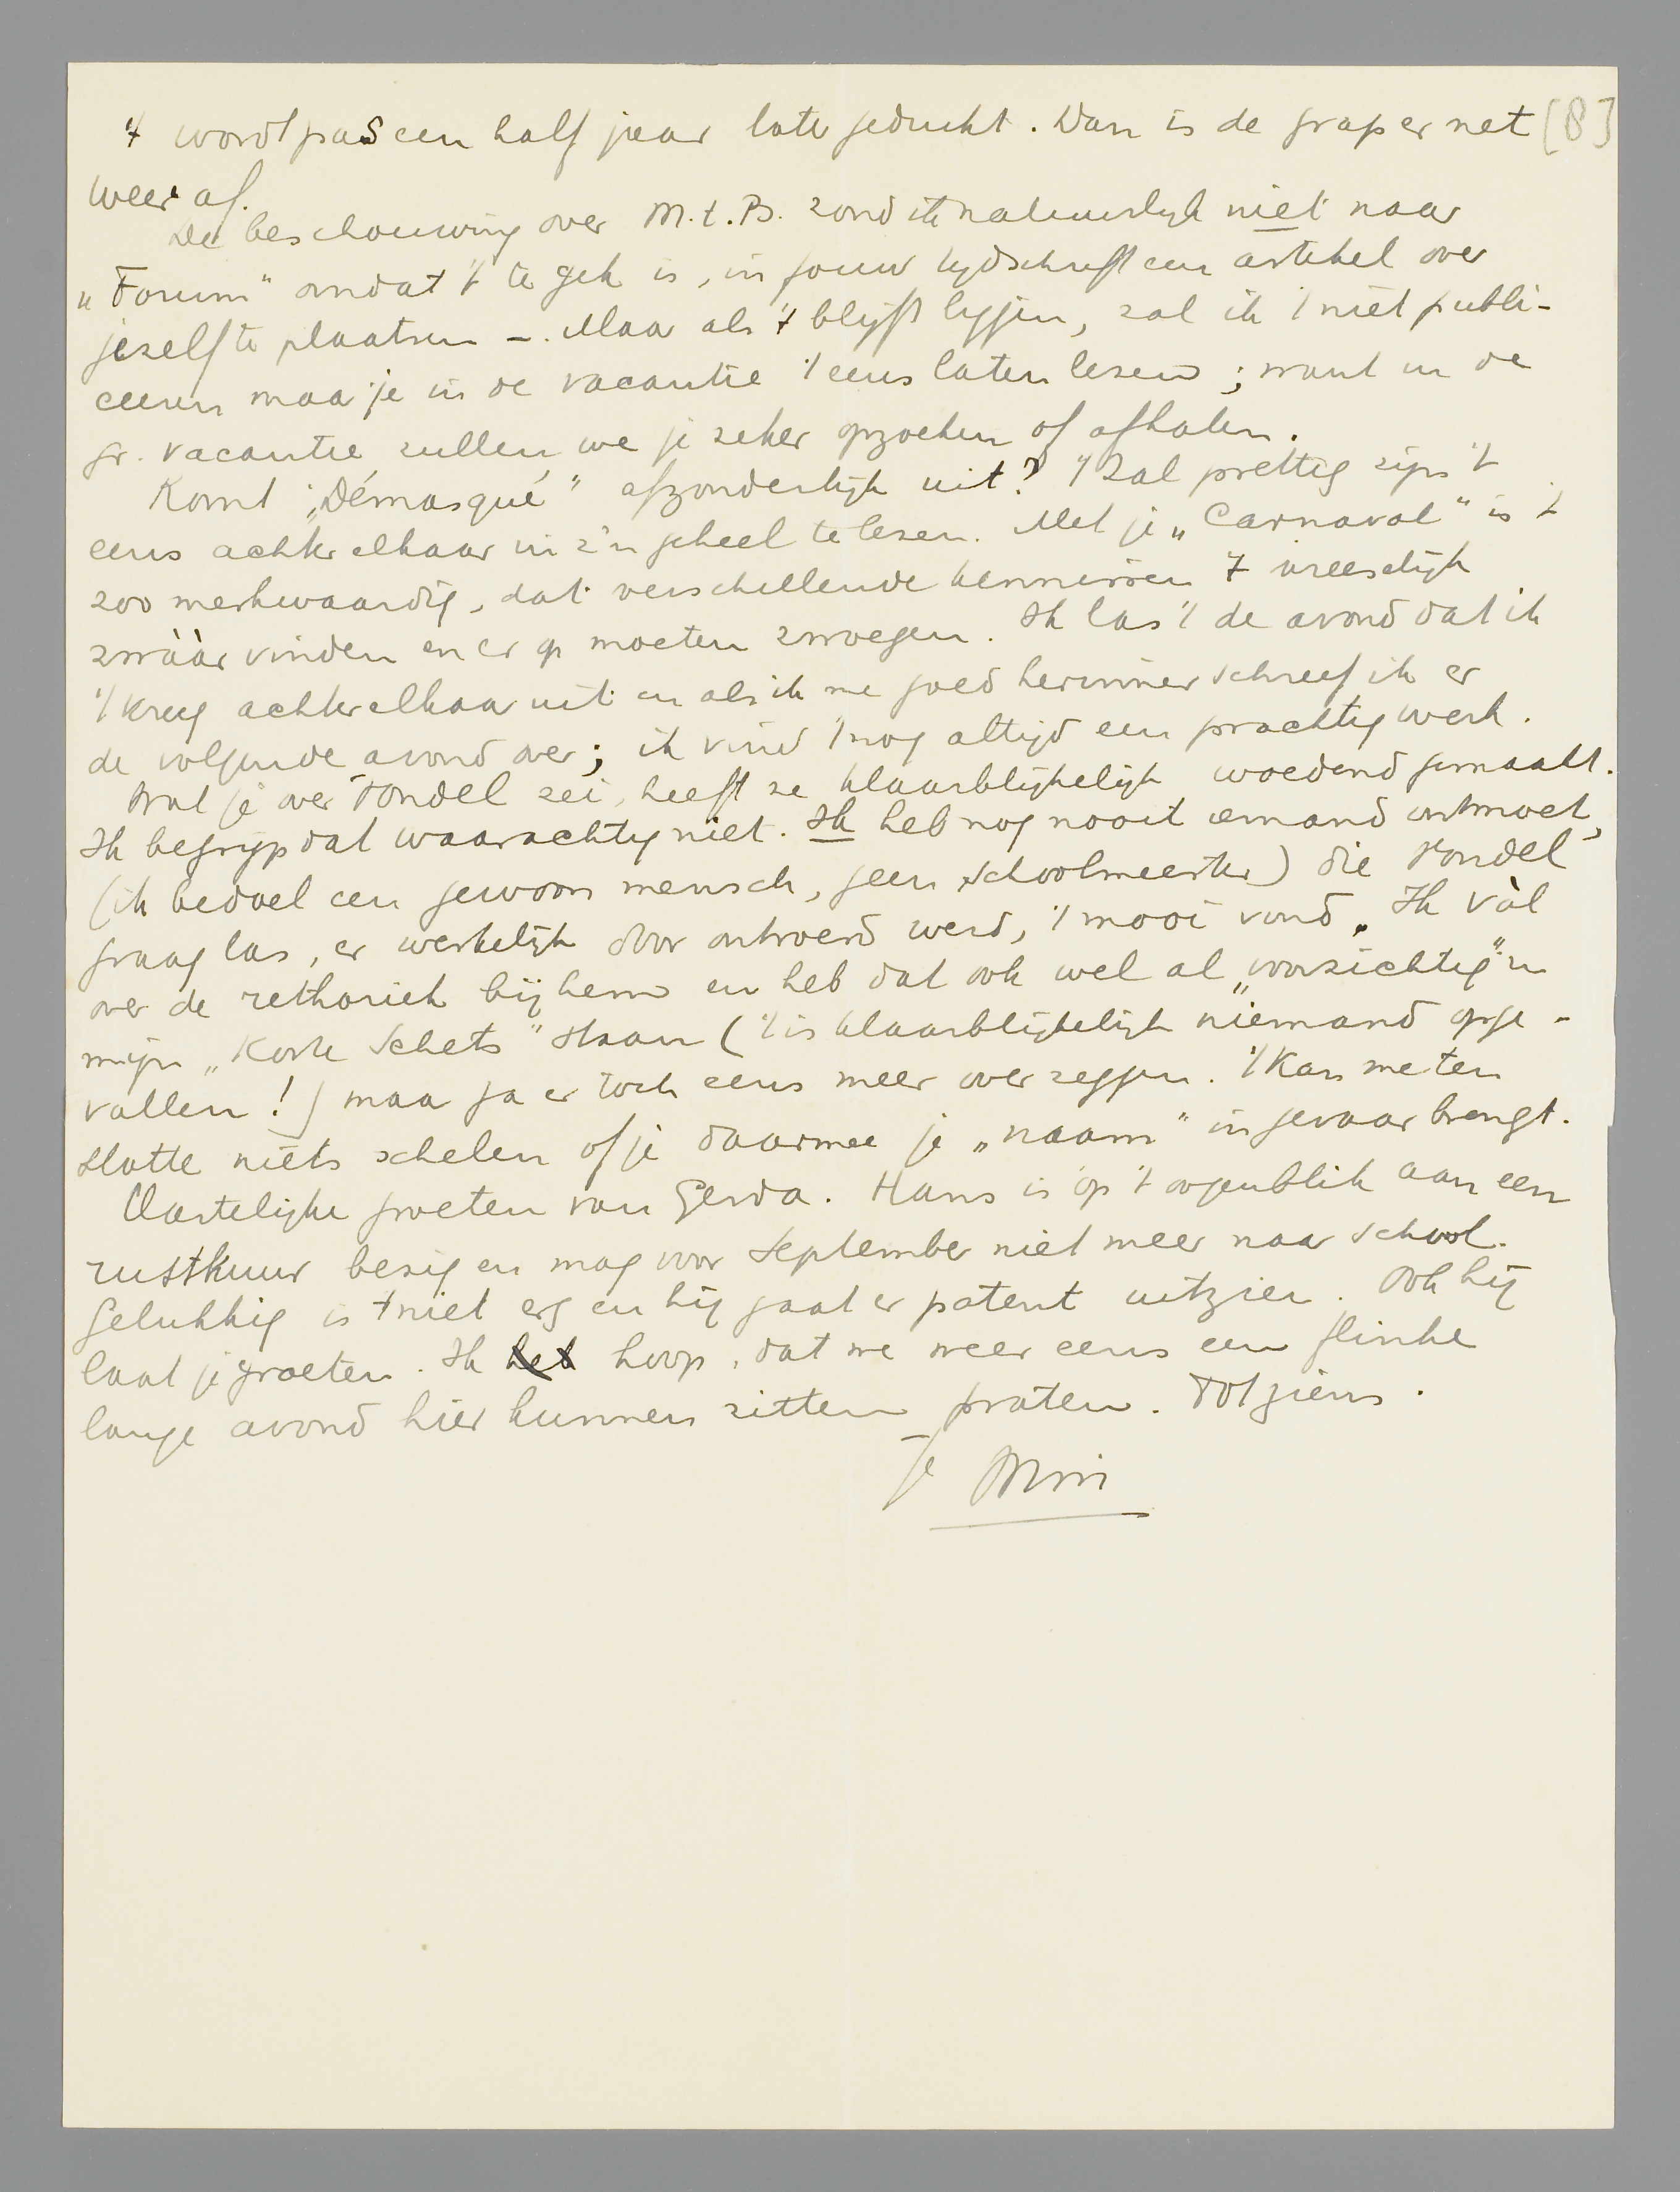 't wordt pas een half jaar later gedrukt. Dan is de grap er net [8]
weer af.
De beschouwing over M.t.B. zond ik natuurlijk niet naar
„Forum" omdat 't te gek is, in jouw tijdschrift een artikel over
jezelf te plaatsen –. Maar als 't blijft liggen, zal ik 't niet publi-
ceeren maar je in de vacantie 't eens laten lezen; want in de
gr. vacantie zullen we je zeker opzoeken of afhalen.
Komt „Démasqué" afzonderlijk uit? 't Zal prettig zijn 't
eens achter elkaar in z'n geheel te lezen. Met je „Carnaval" is 't
zoo merkwaardig, dat verschillende kennissen 't vreeselijk
zwààr vinden en er op moeten zwoegen. Ik las 't de avond dat ik
't kreeg achter elkaar uit en als ik me goed herinner schreef ik er
de volgende avond over; ik vind 't nog altijd een prachtig werk.
Wat je over Vondel zei, heeft ze klaarblijkelijk woedend gemaakt.
Ik begrijp dat waarachtig niet. Ik heb nog nooit iemand ontmoet,
(ik bedoel een gewoon mensch, geen schoolmeester) die Vondel
graag las, er werkelijk door ontroerd werd, 't mooi vond. Ik vàl
over de rethoriek bij hem en heb dat ook wel al „voorzichtig" in
mijn „Korte Schets" staan ('t is klaarblijkelijk niemand opge-
vallen!) maar ga er toch eens meer over zeggen. 't Kan me ten
slotte niets schelen of je daarmee je „naam" in gevaar brengt.
Hartelijke groeten van Gerda. Hans is op 't oogenblik aan een
rustkuur bezig en mag voor September niet meer naar school.
Gelukkig is 't niet erg en hij gaat er patent uitzien. Ook hij
laat je groeten. Ik heb hoop, dat we weer eens een flinke
lange avond hier kunnen zitten praten. Tot ziens.
Je Wim